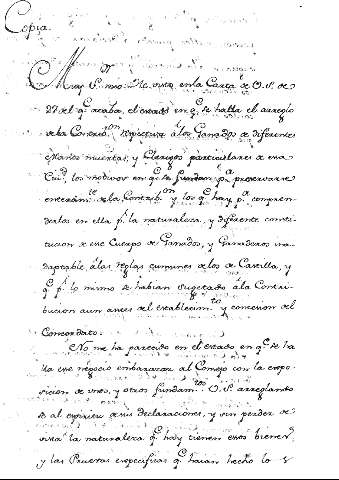 Copia.
Muy S. mio: He visto en la Carta de V. S. de
27 del q.e acaba, el estado en q.e se halla el arreglo
de la Contrib.on respectiva á los Ganados de diferentes
Manos muertas, y Clerigos particulares de esa
Ciu.d, los motivos en q.e se fundan p.a preservarse
enteram.te de la Contrib.on y los q.e hay p.a compren-
derlos en ella p.r la naturaleza, y diferente consti-
tucion de ese Cuerpo de Ganados, y Ganaderos ina-
daptable á las reglas comunes de los de Castilla, y
q.e p.r lo mismo se habian sugetado á la Contri-
bucion aun antes del establecim.to y concesion del
Concordato.
No me ha parecido en el estado en q.e se ha
lla ese negocio embarazar al Consejo con la expo-
sicion de unos, y otros fundam.tos V. S. arreglando-
se al espiritu de sus declaraciones, y sin perder de
vista la naturaleza q.e hay tienen esos bienes,
y las Pruebas especificas q.e haian hecho lo s